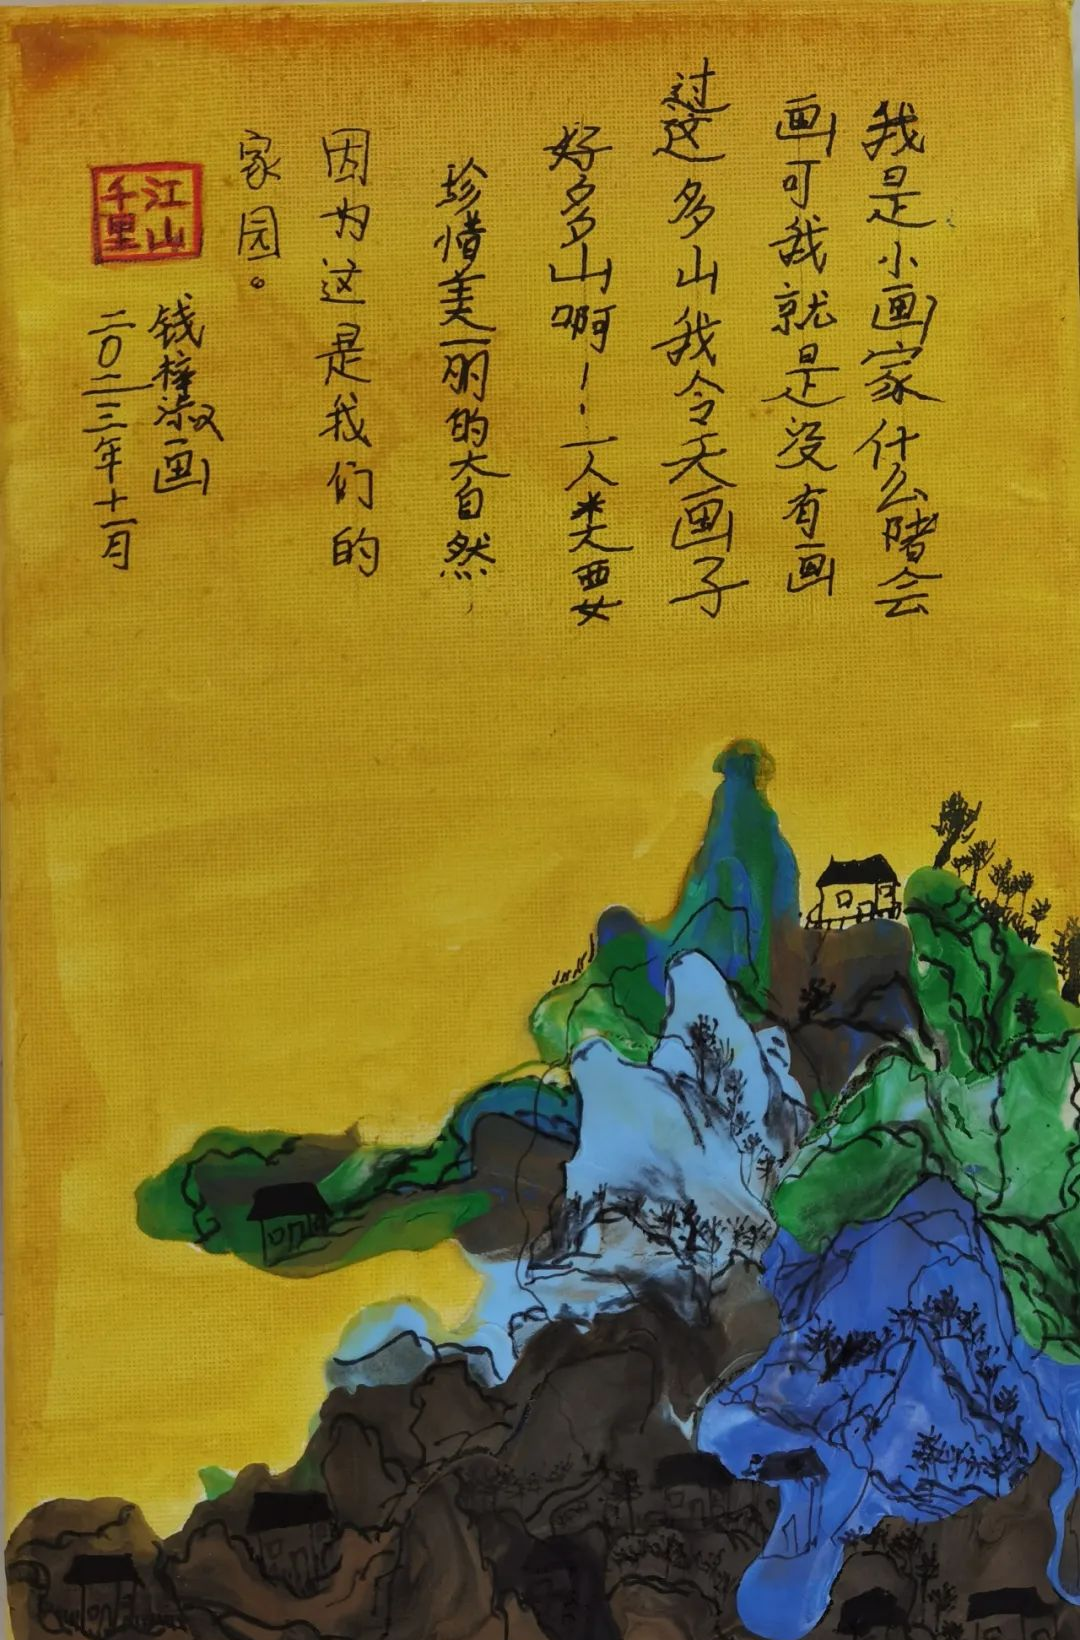 我是小画家什么睹会
画可我就是没有画
过这多山我令天画子
好多山啊！一人类要
珍惜美丽的大自然，
因为这是我们的
家园。
钱梓淑画
二〇二三年十一月
江山
千里